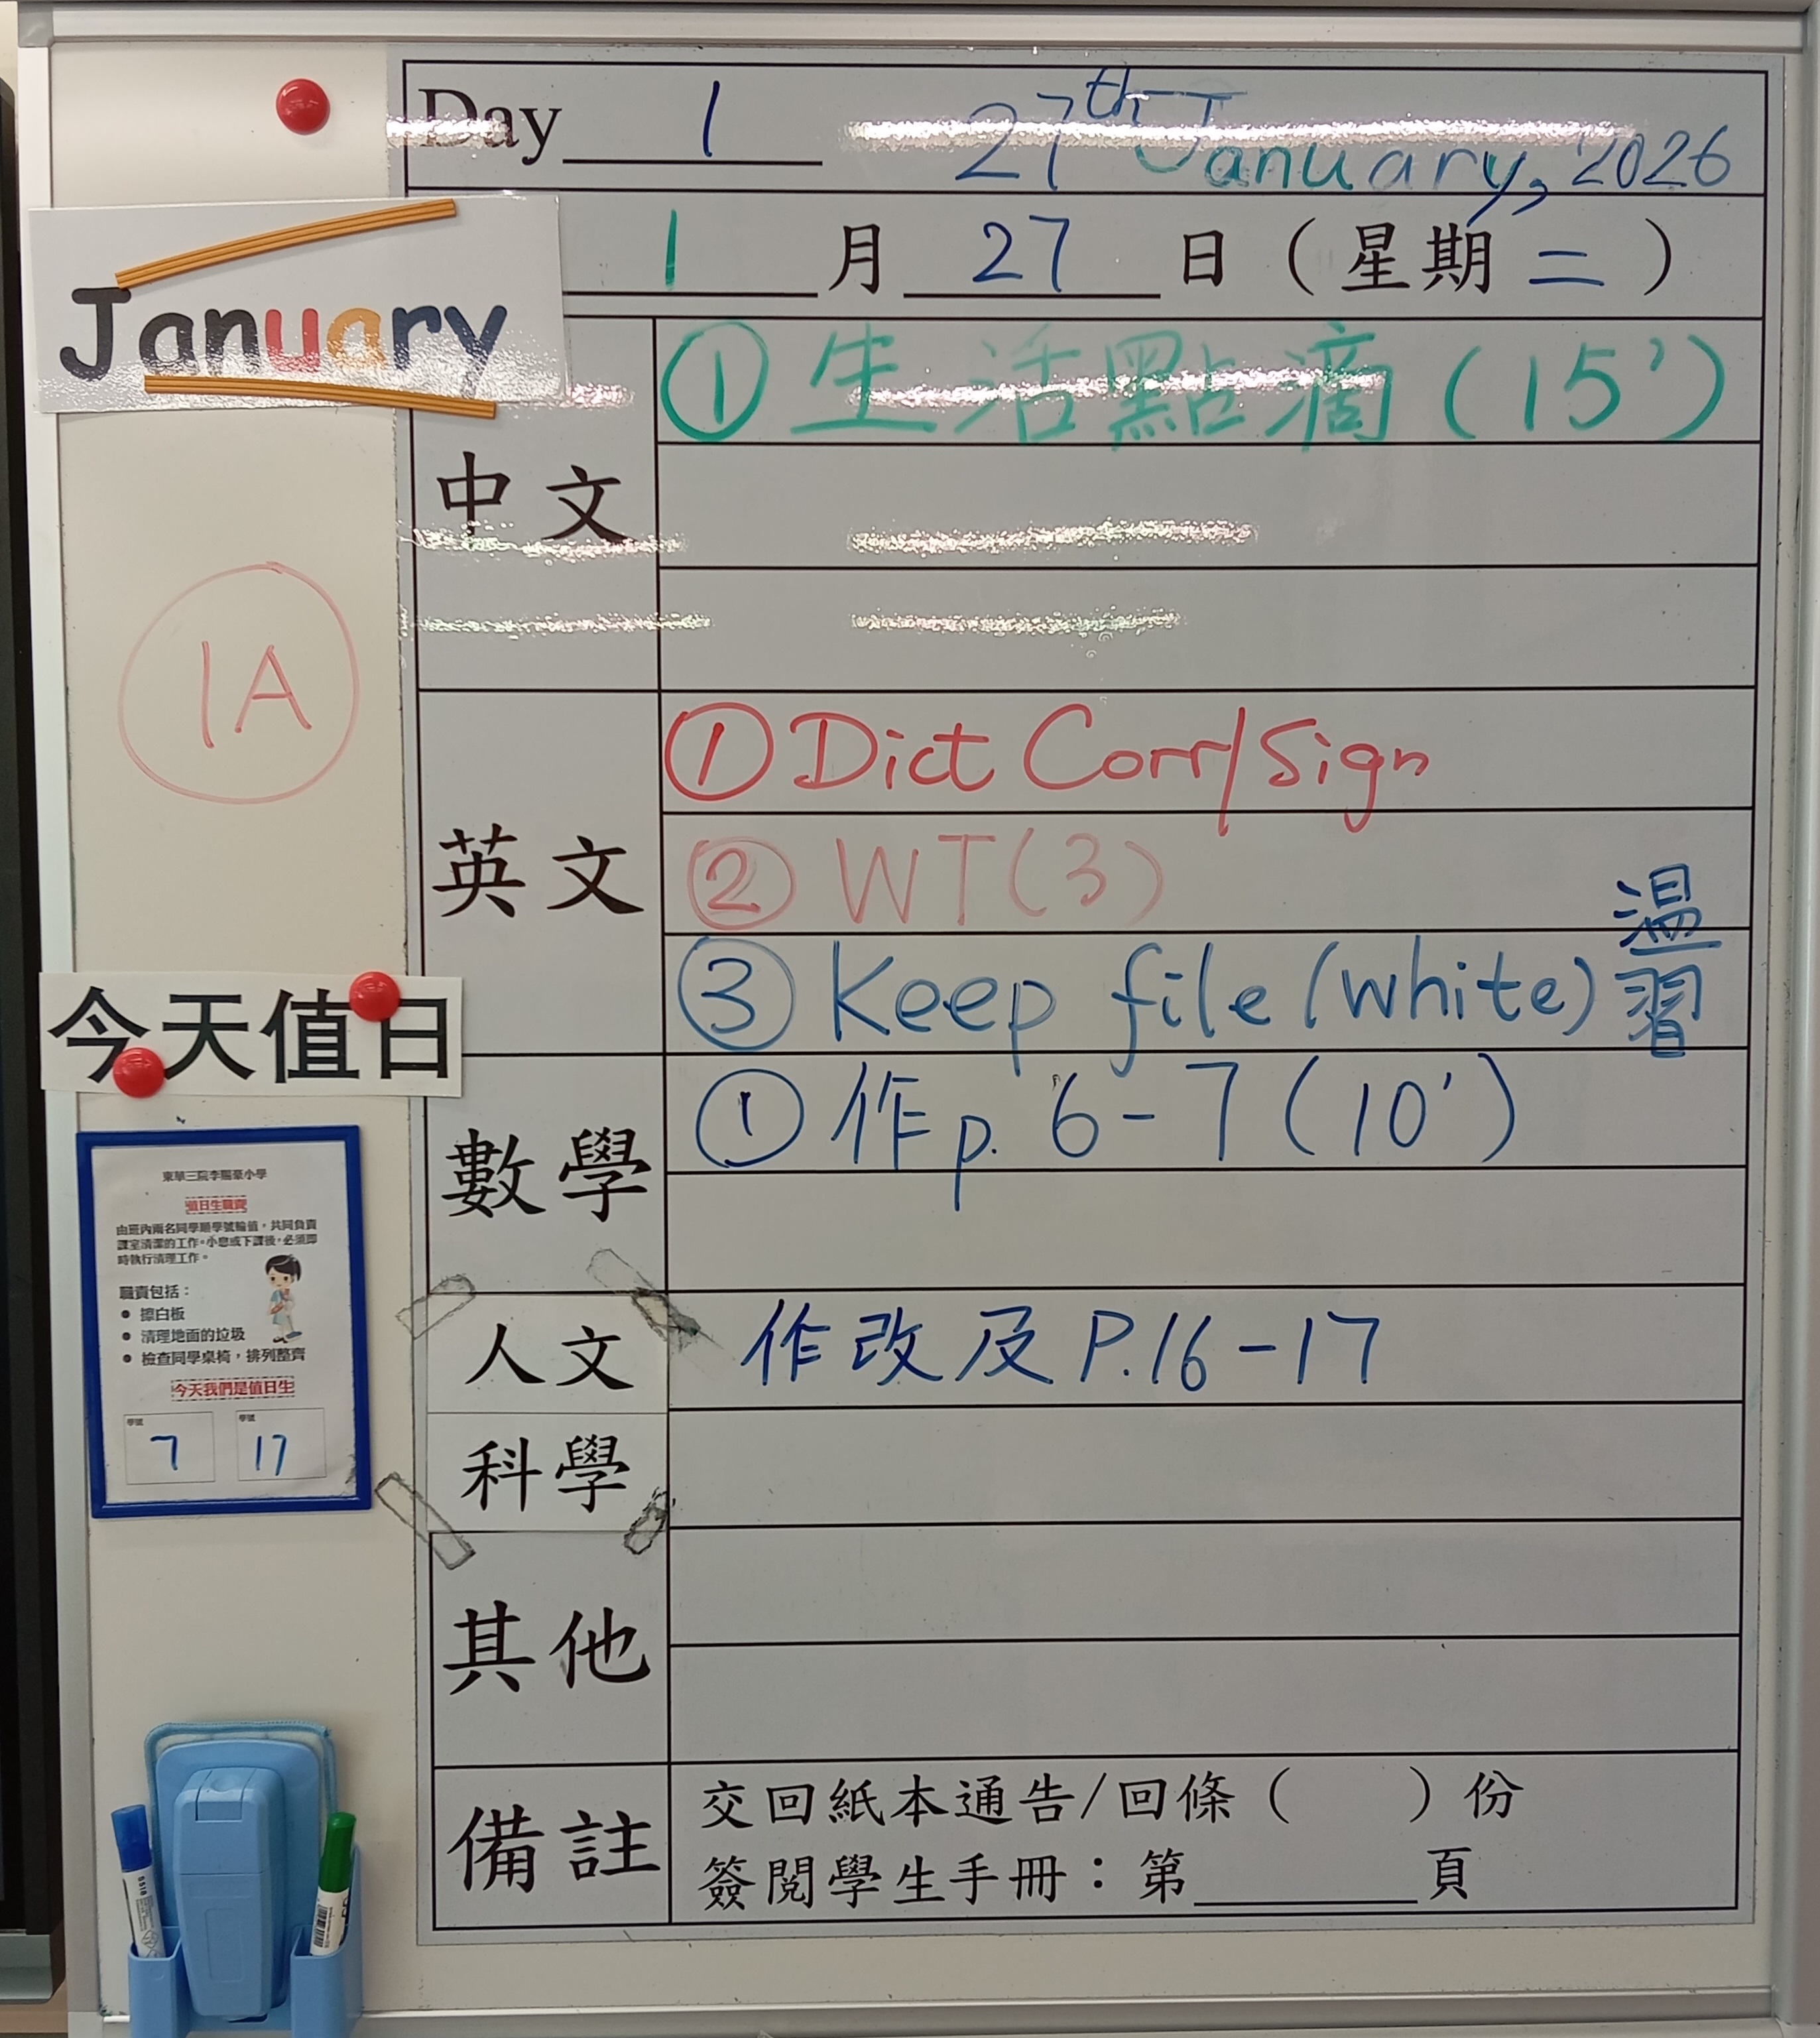 Day 1 27th January, 2026
January
1 月 27 日 ( 星期 二 )
中文
① 生活點滴 (15')
1A
英文
① Dict Corr/Sign
② WT(3)
③ Keep file (white) 溫習
今天值日
數學
① 作 p. 6-7 (10')
人文
作改及 P.16-17
科學
其他
備註
交回紙本通告/回條 ( ) 份
簽閱學生手冊：第______頁
東華三院李賜豪小學
值日生職責
由班內兩名同學順學號輪值，共同負責
課室清潔的工作。小息或下課後，必須即
時執行清理工作。
職責包括：
• 擦白板
• 清理地面的垃圾
• 檢查同學桌椅，排列整齊
今天我們是值日生
學號 學號
7 17